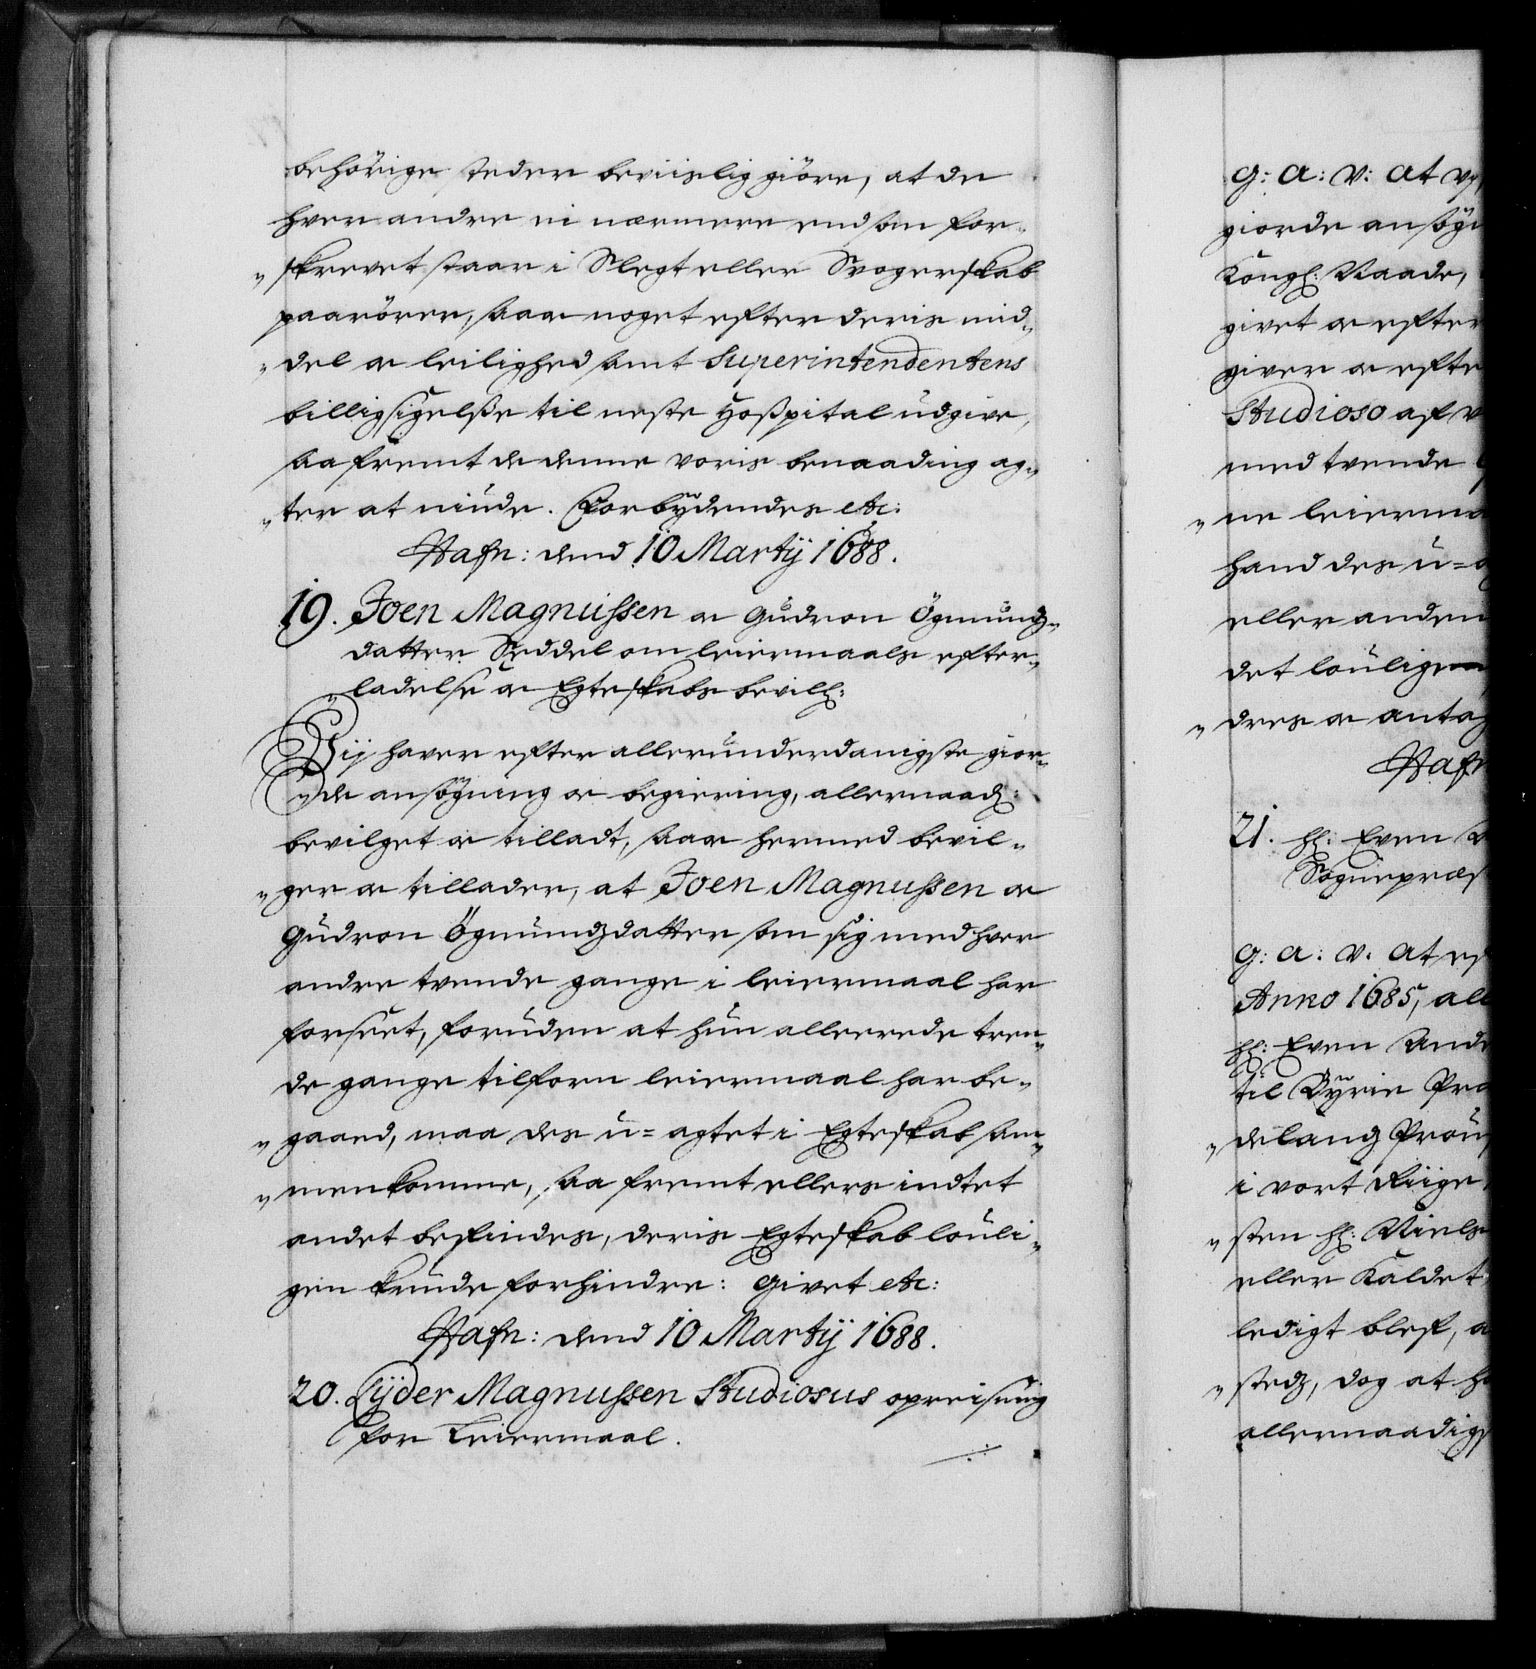 behörige steder beviislig giöre, at de
hver andre ei nærmere end som for-
"skrevet staar i Slegt eller Svogerskab
paarörer, saa noget efter deris mid-
"del oc leilighed samt Superintendentens
billigsigelße til neste Hoßpital üdgive,
saa fremt de denne voris benaading ag-
"ter at niude. Forbydendes etc:
Hafn: dend 10 Martij 1688.
19. Joen Magnussen oc Güdron Ögmündz-
datter Seddel om leiermaals efter-
"ladelse oc Egteskabs bevill:
Vij haver efter alleründerdanigste gior-
"de ansögning oc begiering, allernaad:
bevilget oc tilladt, saa hermed bevil-
"ger oc tillader, at Joen Magnussen oc
Güdron Ögmündzdatter som sig med hver
andre tvende gange i leiermaal har
forseet, foruden at hün allerede tren-
de gange tilforn leiermaal har be-
"gaaed, maa des ü=agtet i Egteskab sam-
"menkomme, saa fremt ellers indtet
andet befindes, deris Egteskab loüli-
gen kunde forhindre: Givet etc:
Hafn: dend 10 Martij 1688.
20. Lyder Magnussen Studiosus opreisning
for Leiermaal.
g: a: v: at
giorde ansög
Kongl: Naade,
givet oc efter
giver oc efte
Studioso af
med tvende
"ne leierma
hand des ü=
eller anden
det loüligen
"dres oc antag
Hafn
21. hl: Even
Sognepræs
g: a: v. at ef
Anno 1685, all
hl: Even And
til Pro
"delang Proü
i vort Riige
"sten hl: Niels
eller Kaldet
ledigt blef, a
"stedz, dog at h
allernaadigs